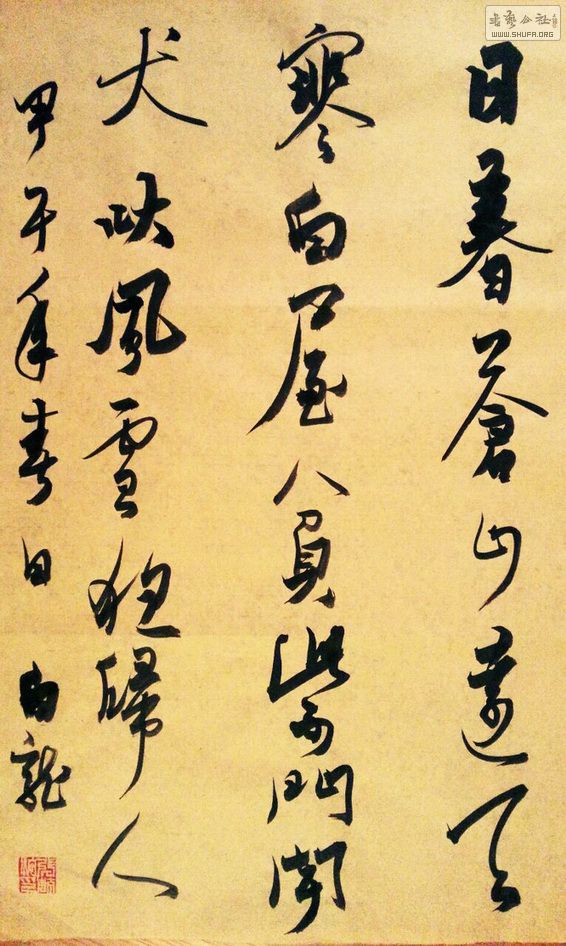 書藝公社
WWW.SHUFA.ORG
日暮蒼山遠天
寒白屋貧柴門聞
犬吠風雪夜歸人
甲午年春日 龍